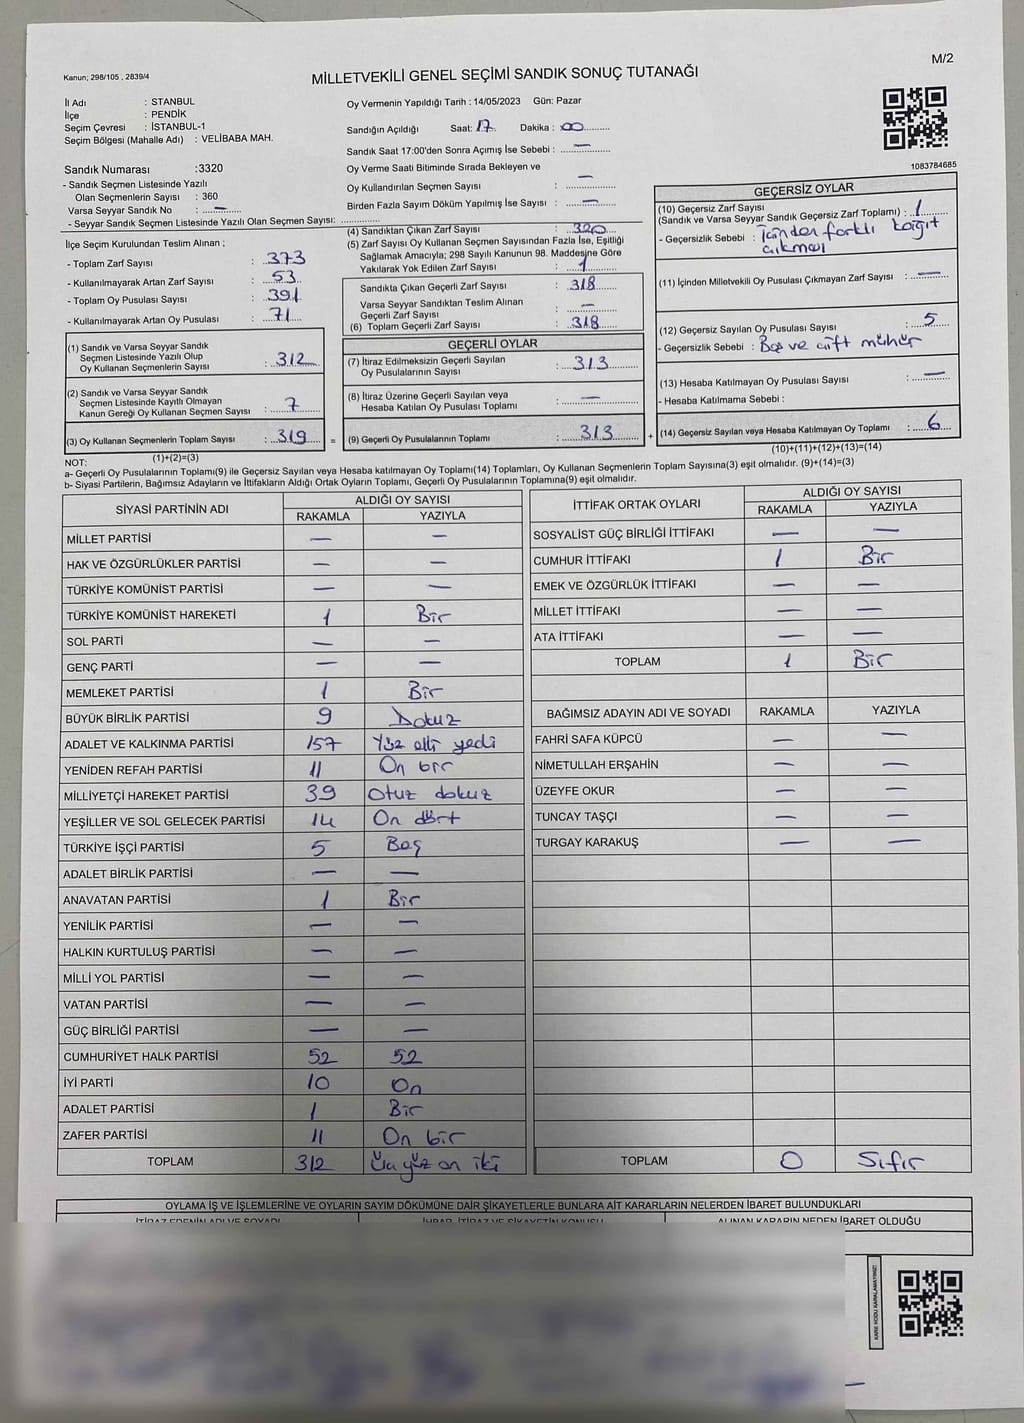 M/2
Kanun; 298/105 , 2839/4
MİLLETVEKİLİ GENEL SEÇİMİ SANDIK SONUÇ TUTANAĞI
İl Adı : STANBUL
İlçe : PENDİK
Seçim Çevresi : İSTANBUL-1
Seçim Bölgesi (Mahalle Adı) : VELİBABA MAH.
Sandık Numarası :3320
- Sandık Seçmen Listesinde Yazılı
Olan Seçmenlerin Sayısı : 360
Varsa Seyyar Sandık No : —
- Seyyar Sandık Seçmen Listesinde Yazılı Olan Seçmen Sayısı:
Oy Vermenin Yapıldığı Tarih : 14/05/2023 Gün: Pazar
Sandığın Açıldığı Saat: 17 Dakika : 00
Sandık Saat 17:00'den Sonra Açımış İse Sebebi : —
Oy Verme Saati Bitiminde Sırada Bekleyen ve
Oy Kullandırılan Seçmen Sayısı : —
Birden Fazla Sayım Döküm Yapılmış İse Sayısı : —
1083784685
İlçe Seçim Kurulundan Teslim Alınan ;
- Toplam Zarf Sayısı : 373
- Kullanılmayarak Artan Zarf Sayısı : 53
- Toplam Oy Pusulası Sayısı : 391
- Kullanılmayarak Artan Oy Pusulası : 71
(1) Sandık ve Varsa Seyyar Sandık
Seçmen Listesinde Yazılı Olup
Oy Kullanan Seçmenlerin Sayısı : 312
(2) Sandık ve Varsa Seyyar Sandık
Seçmen Listesinde Kayıtlı Olmayan
Kanun Gereği Oy Kullanan Seçmen Sayısı : 7
(3) Oy Kullanan Seçmenlerin Toplam Sayısı : 319 =
(1)+(2)=(3)
(4) Sandıktan Çıkan Zarf Sayısı : 320
(5) Zarf Sayısı Oy Kullanan Seçmen Sayısından Fazla İse, Eşitliği
Sağlamak Amacıyla; 298 Sayılı Kanunun 98. Maddesine Göre
Yakılarak Yok Edilen Zarf Sayısı : 1
Sandıkta Çıkan Geçerli Zarf Sayısı : 318
Varsa Seyyar Sandıktan Teslim Alınan
Geçerli Zarf Sayısı : —
(6) Toplam Geçerli Zarf Sayısı : 318
GEÇERLİ OYLAR
(7) İtiraz Edilmeksizin Geçerli Sayılan
Oy Pusulalarının Sayısı : 313
(8) İtiraz Üzerine Geçerli Sayılan veya
Hesaba Katılan Oy Pusulası Toplamı : —
(9) Geçerli Oy Pusulalarının Toplamı : 313 +
GEÇERSİZ OYLAR
(10) Geçersiz Zarf Sayısı
(Sandık ve Varsa Seyyar Sandık Geçersiz Zarf Toplamı) : 1
- Geçersizlik Sebebi : İçinden farklı kağıt
çıkması
(11) İçinden Milletvekili Oy Pusulası Çıkmayan Zarf Sayısı : —
(12) Geçersiz Sayılan Oy Pusulası Sayısı : 5
- Geçersizlik Sebebi : Boş ve çift mühür
(13) Hesaba Katılmayan Oy Pusulası Sayısı : —
- Hesaba Katılmama Sebebi :
(14) Geçersiz Sayılan veya Hesaba Katılmayan Oy Toplamı : 6
(10)+(11)+(12)+(13)=(14)
NOT:
a- Geçerli Oy Pusulalarının Toplamı(9) ile Geçersiz Sayılan veya Hesaba katılmayan Oy Toplamı(14) Toplamları, Oy Kullanan Seçmenlerin Toplam Sayısına(3) eşit olmalıdır. (9)+(14)=(3)
b- Siyasi Partilerin, Bağımsız Adayların ve İttifakların Aldığı Ortak Oyların Toplamı, Geçerli Oy Pusulalarının Toplamına(9) eşit olmalıdır.
SİYASİ PARTİNİN ADI ALDIĞI OY SAYISI
RAKAMLA YAZIYLA
MİLLET PARTİSİ — —
HAK VE ÖZGÜRLÜKLER PARTİSİ — —
TÜRKİYE KOMÜNİST PARTİSİ — —
TÜRKİYE KOMÜNİST HAREKETİ 1 Bir
SOL PARTİ — —
GENÇ PARTİ — —
MEMLEKET PARTİSİ 1 Bir
BÜYÜK BİRLİK PARTİSİ 9 Dokuz
ADALET VE KALKINMA PARTİSİ 157 Yüz elli yedi
YENİDEN REFAH PARTİSİ 11 On bir
MİLLİYETÇİ HAREKET PARTİSİ 39 Otuz dokuz
YEŞİLLER VE SOL GELECEK PARTİSİ 14 On dört
TÜRKİYE İŞÇİ PARTİSİ 5 Beş
ADALET BİRLİK PARTİSİ — —
ANAVATAN PARTİSİ 1 Bir
YENİLİK PARTİSİ — —
HALKIN KURTULUŞ PARTİSİ — —
MİLLİ YOL PARTİSİ — —
VATAN PARTİSİ — —
GÜÇ BİRLİĞİ PARTİSİ — —
CUMHURİYET HALK PARTİSİ 52 52
İYİ PARTİ 10 On
ADALET PARTİSİ 1 Bir
ZAFER PARTİSİ 11 On bir
TOPLAM 312 Üç yüz on iki
İTTİFAK ORTAK OYLARI ALDIĞI OY SAYISI
RAKAMLA YAZIYLA
SOSYALİST GÜÇ BİRLİĞİ İTTİFAKI — —
CUMHUR İTTİFAKI 1 Bir
EMEK VE ÖZGÜRLÜK İTTİFAKI — —
MİLLET İTTİFAKI — —
ATA İTTİFAKI — —
TOPLAM 1 Bir
BAĞIMSIZ ADAYIN ADI VE SOYADI RAKAMLA YAZIYLA
FAHRİ SAFA KÜPCÜ — —
NİMETULLAH ERŞAHİN — —
ÜZEYFE OKUR — —
TUNCAY TAŞÇI — —
TURGAY KARAKUŞ — —
TOPLAM 0 Sıfır
OYLAMA İŞ VE İŞLEMLERİNE VE OYLARIN SAYIM DÖKÜMÜNE DAİR ŞİKAYETLERLE BUNLARA AİT KARARLARIN NELERDEN İBARET BULUNDUKLARI
İTİRAZ EDENİN ADI VE SOYADI İHBAR, İTİRAZ VE ŞİKAYETİN KONUSU ALINAN KARARIN NEDEN İBARET OLDUĞU
KARE KODU KARALAMAYINIZ!